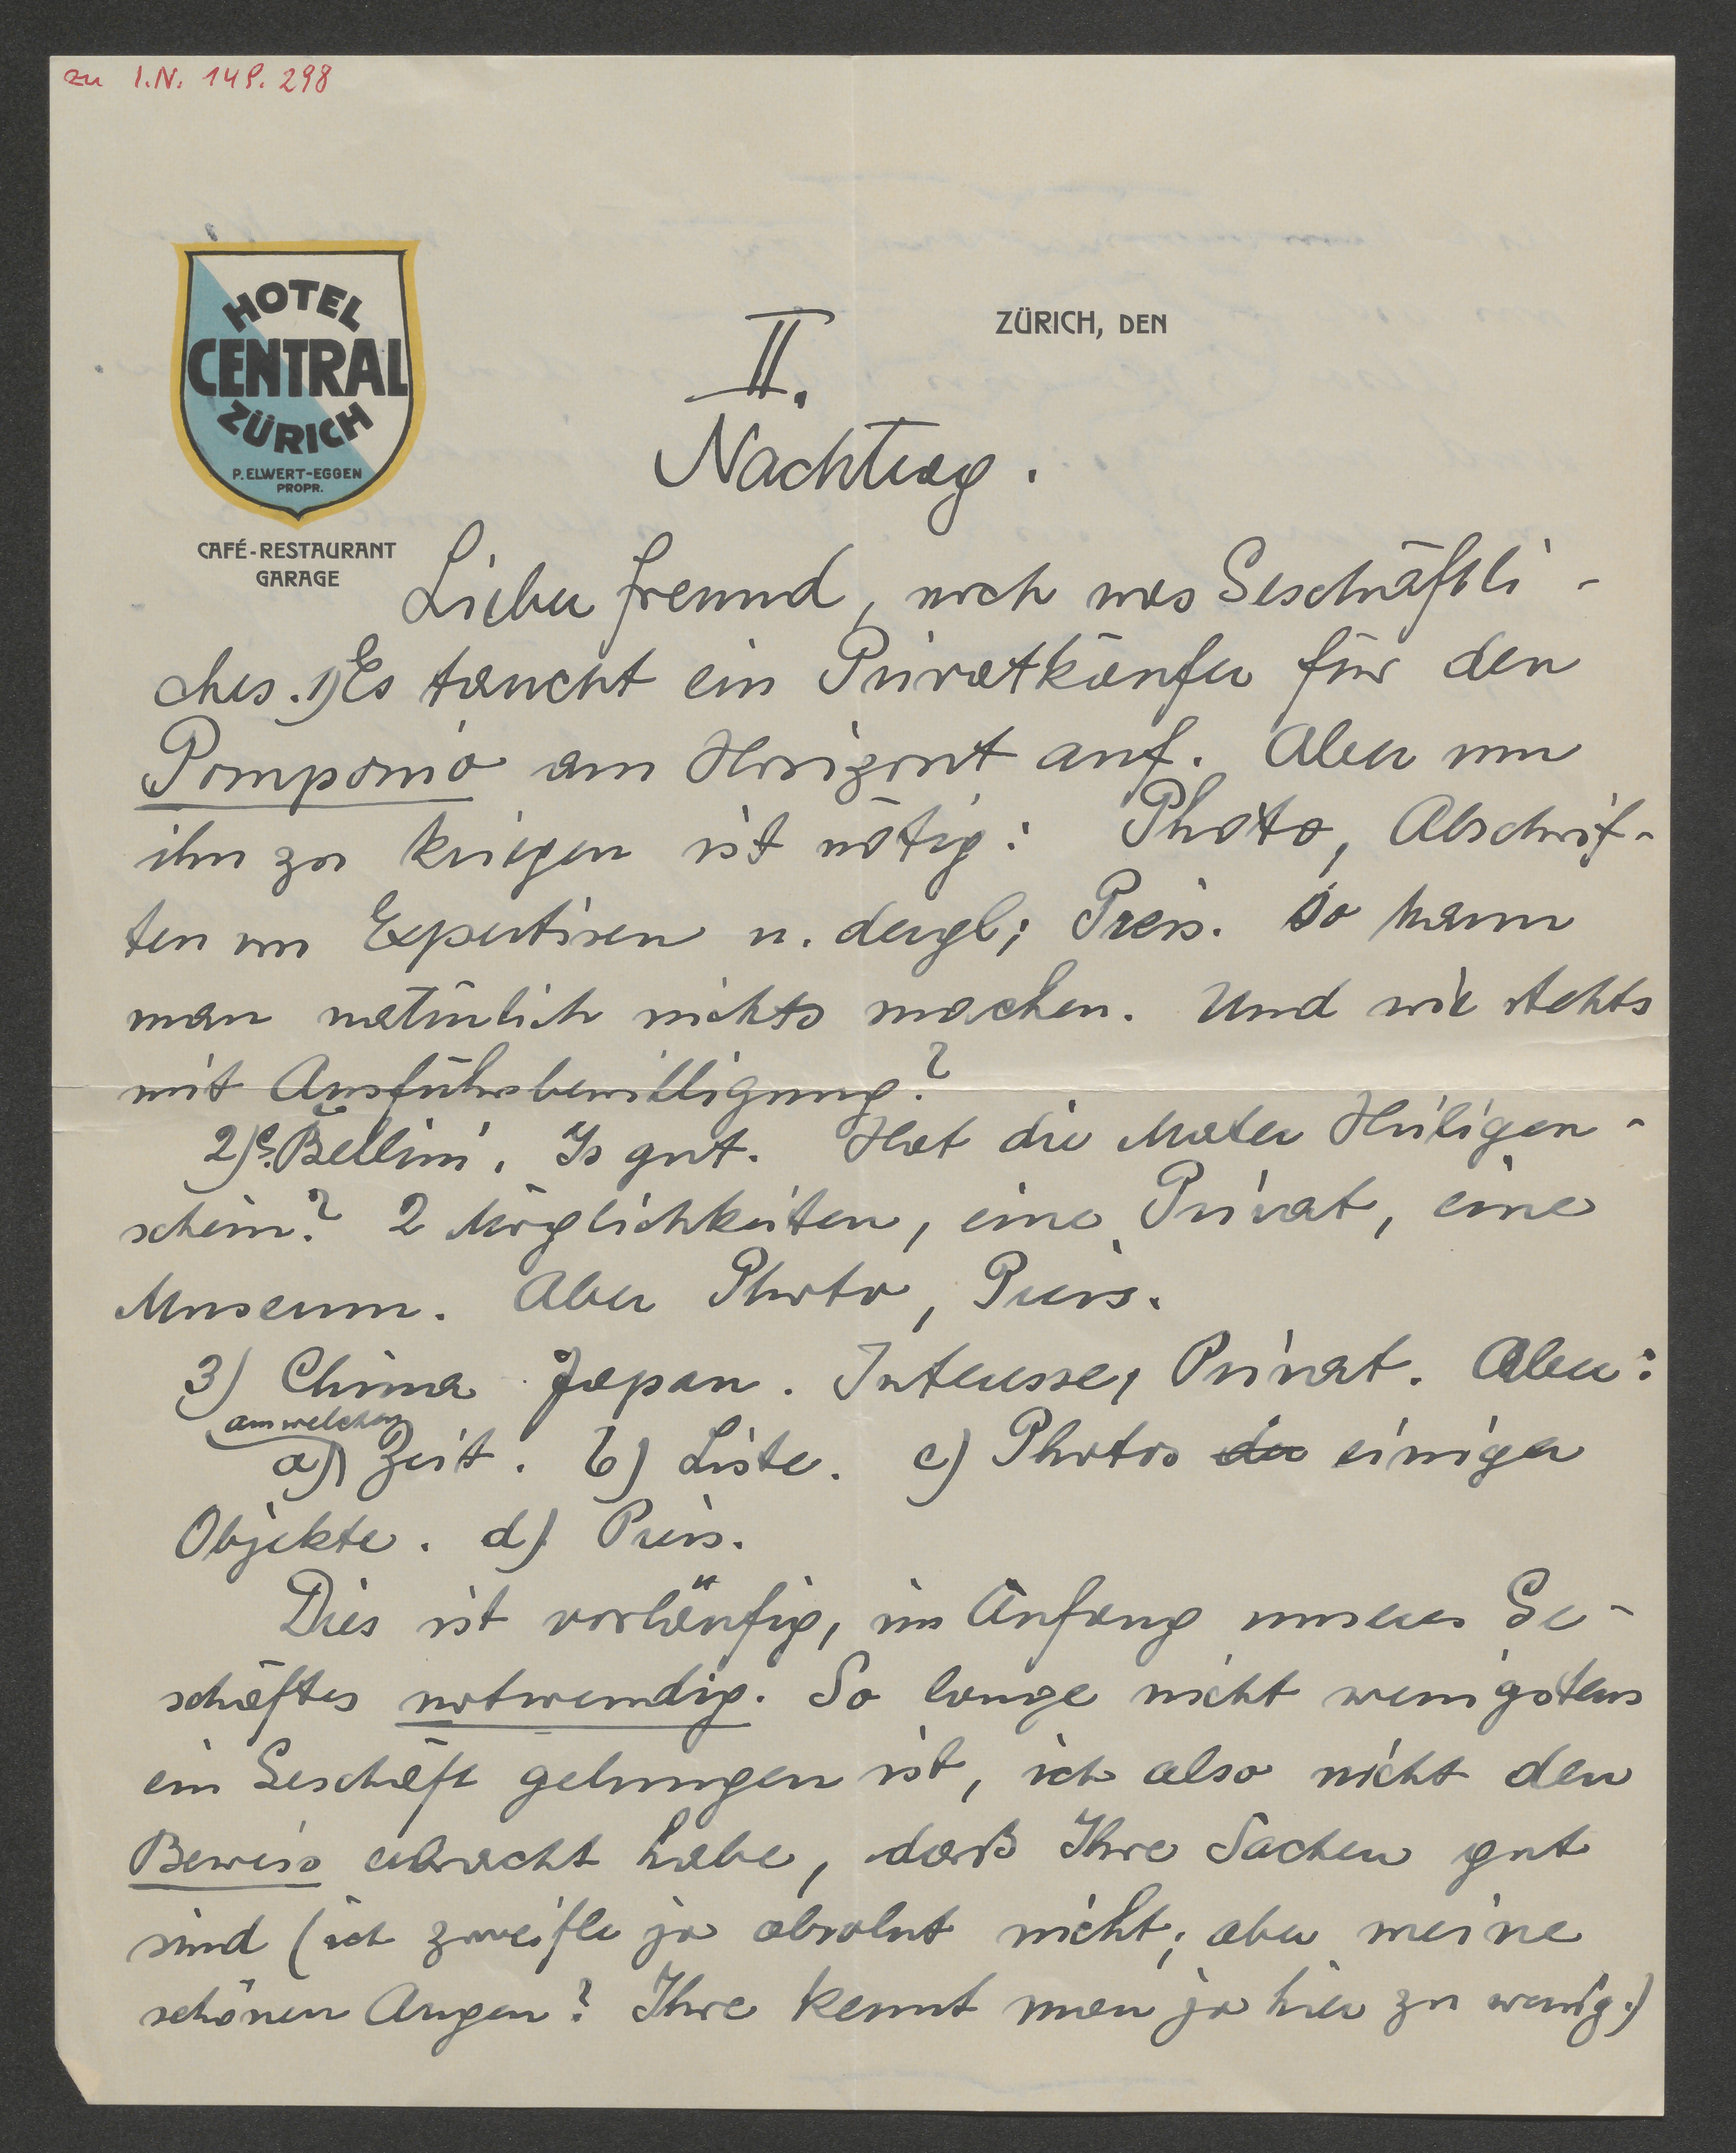 zu I.N. 149.298
HOTEL
CENTRAL
ZÜRICH
P. ELWERT-EGGEN
PROPR.
CAFÉ-RESTAURANT
GARAGE
ZÜRICH, DEN
II.
Nachtrag.
Lieber Freund, noch was Geschäftli-
ches. 1) Es taucht ein Privatkäufer für den
Pomponio am Horizont auf. Aber um
ihn zu kriegen ist nötig: Photo, Abschrif-
ten von Expertisen u. dergl; Preis. So kann
man natürlich nichts machen. Und wie stehts
mit Ausfuhrsbewilligung?
2) G. Bellini. Is gut. Hat die Mater Heiligen-
schein? 2 Möglichkeiten, eine Privat, eine
Museum. Aber Photo, Preis.
3) China Japan. Interesse, Privat. Aber:
aus welcher
a) Zeit. b) Liste. c) Photos der einiger
Objekte. d) Preis.
Dies ist vorläufig, im Anfang unseres Ge-
schäftes notwendig. So lange nicht wenigstens
ein Geschäft gelungen ist, ich also nicht den
Beweis erbracht habe, daß Ihre Sachen gut
sind (ich zweifle ja absolut nicht; aber meine
schönen Augen? Ihre kennt man ja hier zu wenig.)